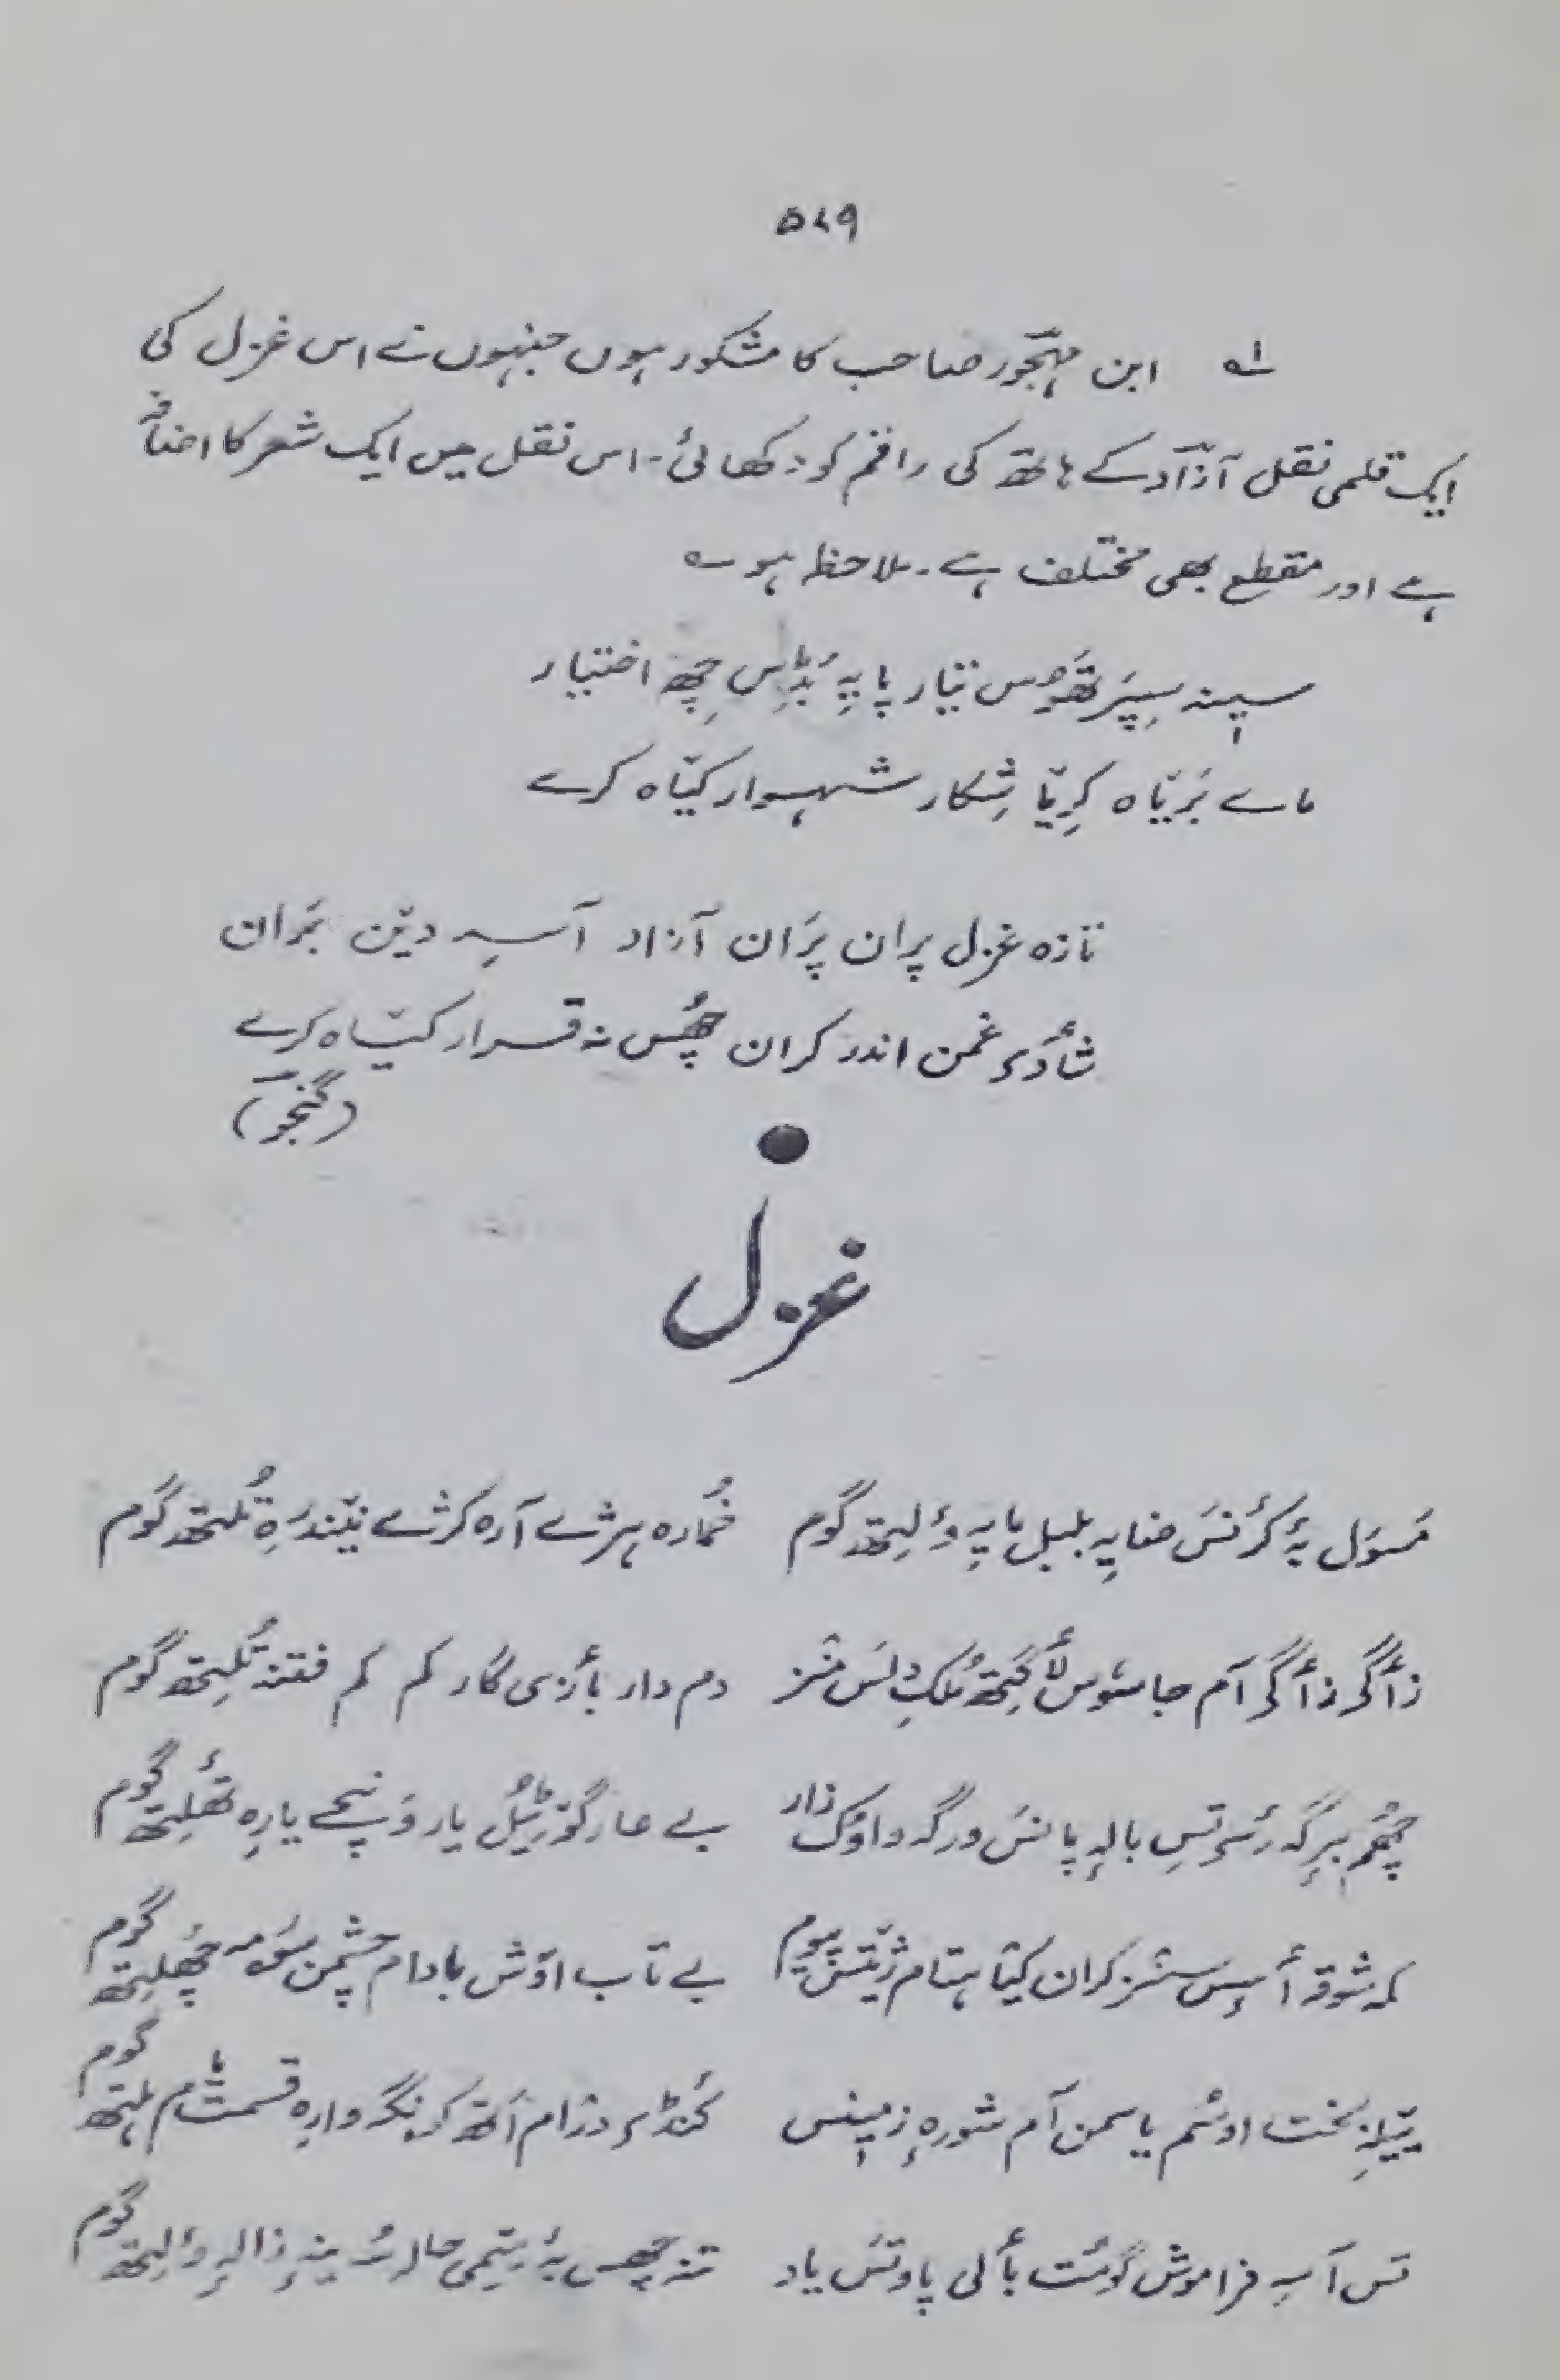 ۵۷۹
۱؎ ابن مہجور صاحب کا مشکور ہوں جنہوں نے اس غزل کی
ایک قلمی نقل آزاد کے ہاتھ کی راقم کو دکھائی۔ اس نقل میں ایک شعر کا اضافہ
ہے اور مقطع بھی مختلف ہے۔ ملاحظہ ہو؎
سینہ سِپَر تھَووُس تیار پایہِ بُڈِس چھِ اختیار
ماے بَرتیاہ کرِتیا شِکار شہسوار کیّاہ کرے
تازہ غزل پران پرَان آزاد آسہِ دیّن بَران
شٲدؠ غمن اندر کران چھُس نہ قرار کیّاہ کرے
(گنجو)
غزل
مَسوَل بہٕ کرٕنَس ضایہِ بلبل مایہِ وٕلِتھ گوم خُمارہ ہرژے آرہ کرژے نیّندرِہ تُلتھ گوم
زٲگؠ زٲگؠ آم جاسُوس لٲگِتھ مُلکِ دِلَس منٛز دم دار بٲزی گار کم کم فتنہ تُلِتھ گوم
چھُم ہرِگہ رٔژ تسِ بالہِ پانَس ورگہ واوُک زار بے عار گۆژیٖل یار وَنیٚے یارِہ تھٔلِتھ گوم
کمہِ شوقہ أسِس سنٛز کران کیّا ہتام پیوم بے تاب اوٚش بادام چشمن سُرمہ چھٔلِتھ گوم
بخت اوسُم یاسمن آم شورہِ زمیٖنس کٔنڈؠ درٛام اَتھ کونگہ وارِہ قسمتٕے ہلتھ گوم
تس آسہِ فراموش گومُت بٲلی پاوتَس یاد تنہ چھس بہٕ یتٕمی حالہٕ ینہٕ زالہِ وٕلِتھ گوم